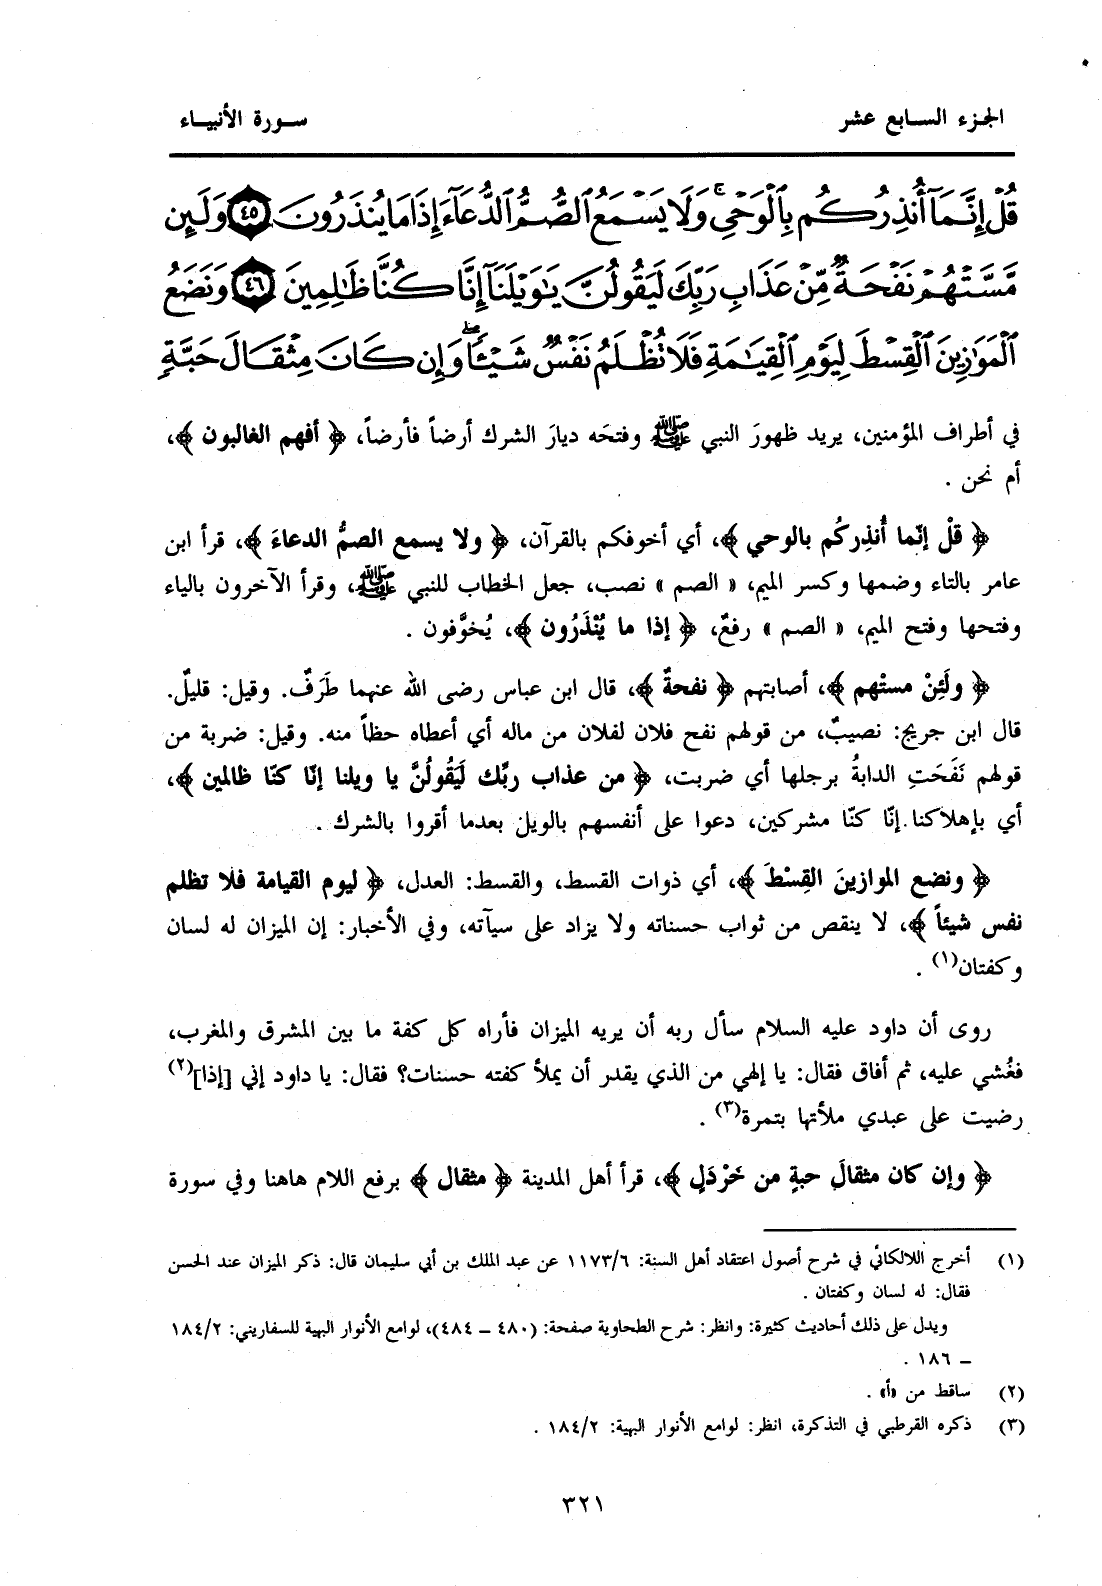 الجزء السابع عشر
سورة الأنبياء
قُلْ إِنَّمَآ أُنذِرُكُم بِٱلْوَحْىِ ۚ وَلَا يَسْمَعُ ٱلصُّمُّ ٱلدُّعَآءَ إِذَا مَا يُنذَرُونَ ٤٥ وَلَئِن
مَّسَّتْهُمْ نَفْحَةٌ مِّنْ عَذَابِ رَبِّكَ لَيَقُولُنَّ يَٰوَيْلَنَآ إِنَّا كُنَّا ظَٰلِمِينَ ٤٦ وَنَضَعُ
ٱلْمَوَٰزِينَ ٱلْقِسْطَ لِيَوْمِ ٱلْقِيَٰمَةِ فَلَا تُظْلَمُ نَفْسٌ شَيْـًٔا ۖ وَإِن كَانَ مِثْقَالَ حَبَّةٍ
في أطراف المؤمنين، يريد ظهورَ النبي ﷺ وفتحَه ديارَ الشرك أرضاً فأرضاً، ﴿ أفهم الغالبون ﴾،
أم نحن .
﴿ قلْ إنّما أُنذِركُم بالوحي ﴾، أي أخوفكم بالقرآن، ﴿ ولا يسمع الصمُّ الدعاءَ ﴾، قرأ ابن
عامر بالتاء وضمها وكسر الميم، « الصم » نصب، جعل الخطاب للنبي ﷺ، وقرأ الآخرون بالياء
وفتحها وفتح الميم، « الصم » رفعٌ، ﴿ إذا ما يُنْذَرُون ﴾، يُخوَّفون .
﴿ ولَئِنْ مستْهم ﴾، أصابتهم ﴿ نفحةٌ ﴾، قال ابن عباس رضى الله عنهما طَرَفٌ. وقيل: قليلٌ.
قال ابن جريج: نصيبٌ، من قولهم نفح فلان لفلان من ماله أي أعطاه حظاً منه. وقيل: ضربة من
قولهم نَفَحَتِ الدابةُ برجلها أي ضربت، ﴿ من عذاب ربِّك لَيَقُولُنَّ يا ويلنا إنّا كنّا ظالمين ﴾،
أي بإهلاكنا.إنّا كنّا مشركين، دعوا على أنفسهم بالويل بعدما أقروا بالشرك .
﴿ ونضع الموازينَ القِسْطَ ﴾، أي ذوات القسط، والقسط: العدل، ﴿ ليوم القيامة فلا تظلم
نفس شيئاً ﴾، لا ينقص من ثواب حسناته ولا يزاد على سيآته، وفي الأخبار: إن الميزان له لسان
وكفتان(١) .
روى أن داود عليه السلام سأل ربه أن يريه الميزان فأراه كل كفة ما بين المشرق والمغرب،
فغُشي عليه، ثم أفاق فقال: يا إلهي من الذي يقدر أن يملأ كفته حسنات؟ فقال: يا داود إني [إذا](٢)
رضيت على عبدي ملأتها بتمرة(٣) .
﴿ وإن كان مثقالَ حبةٍ من خَرْدَلٍ ﴾، قرأ أهل المدينة ﴿ مثقال ﴾ برفع اللام هاهنا وفي سورة
(١) أخرج اللالكائي في شرح أصول اعتقاد أهل السنة: ١١٧٣/٦ عن عبد الملك بن أبي سليمان قال: ذكر الميزان عند الحسن
فقال: له لسان وكفتان .
ويدل على ذلك أحاديث كثيرة: وانظر: شرح الطحاوية صفحة: (٤٨٠ – ٤٨٤)، لوامع الأنوار البهية للسفاريني: ١٨٤/٢
– ١٨٦ .
(٢) ساقط من «أ» .
(٣) ذكره القرطبي في التذكرة، انظر: لوامع الأنوار البهية: ١٨٤/٢ .
٣٢١